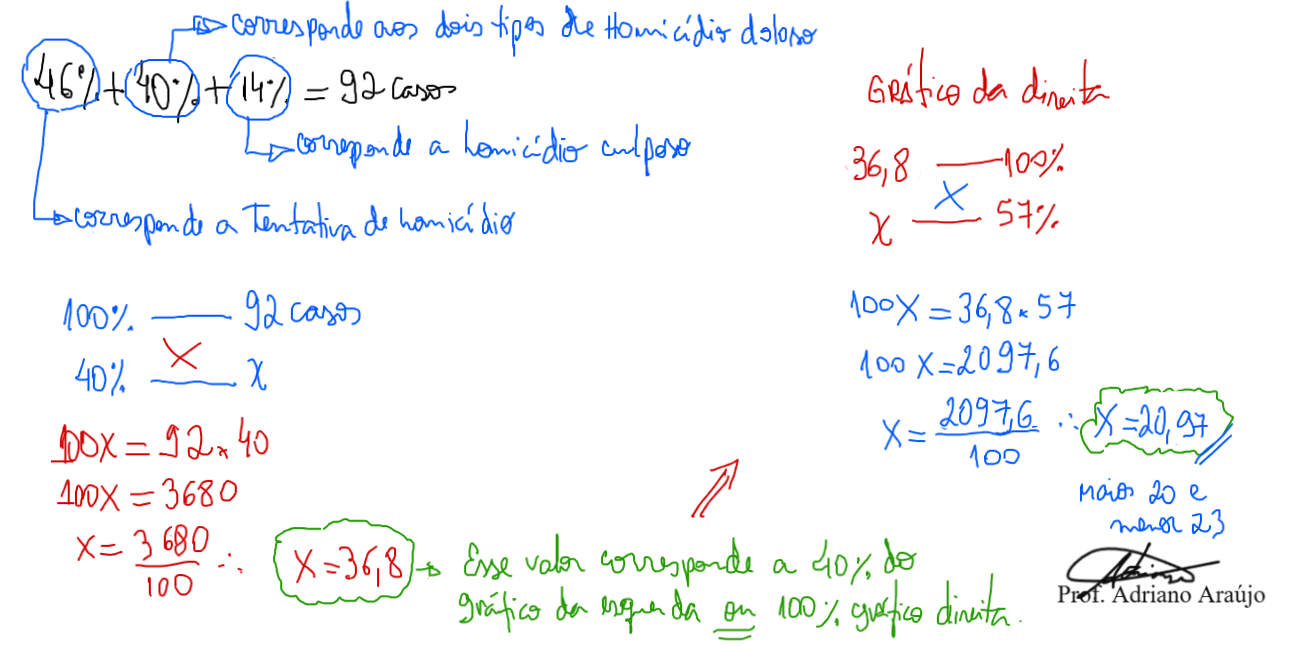 corresponde aos dois tipos de Homicídio doloso
46% + 40% + 14% = 92 casos
correponde a homicídio culposo
corresponde a Tentativa de homicídio
100% — 92 casos
X
40% — x
100X = 92 × 40
100X = 3680
X = 3680/100 ∴ X = 36,8 → Esse valor corresponde a 40% do
gráfico da esquerda ou 100% gráfico direita.
GRÁfico da direita
36,8 — 100%
X
x — 57%
100X = 36,8 × 57
100X = 2097,6
X = 2097,6/100 ∴ X = 20,97
maior 20 e
menor 23
Prof. Adriano Araújo